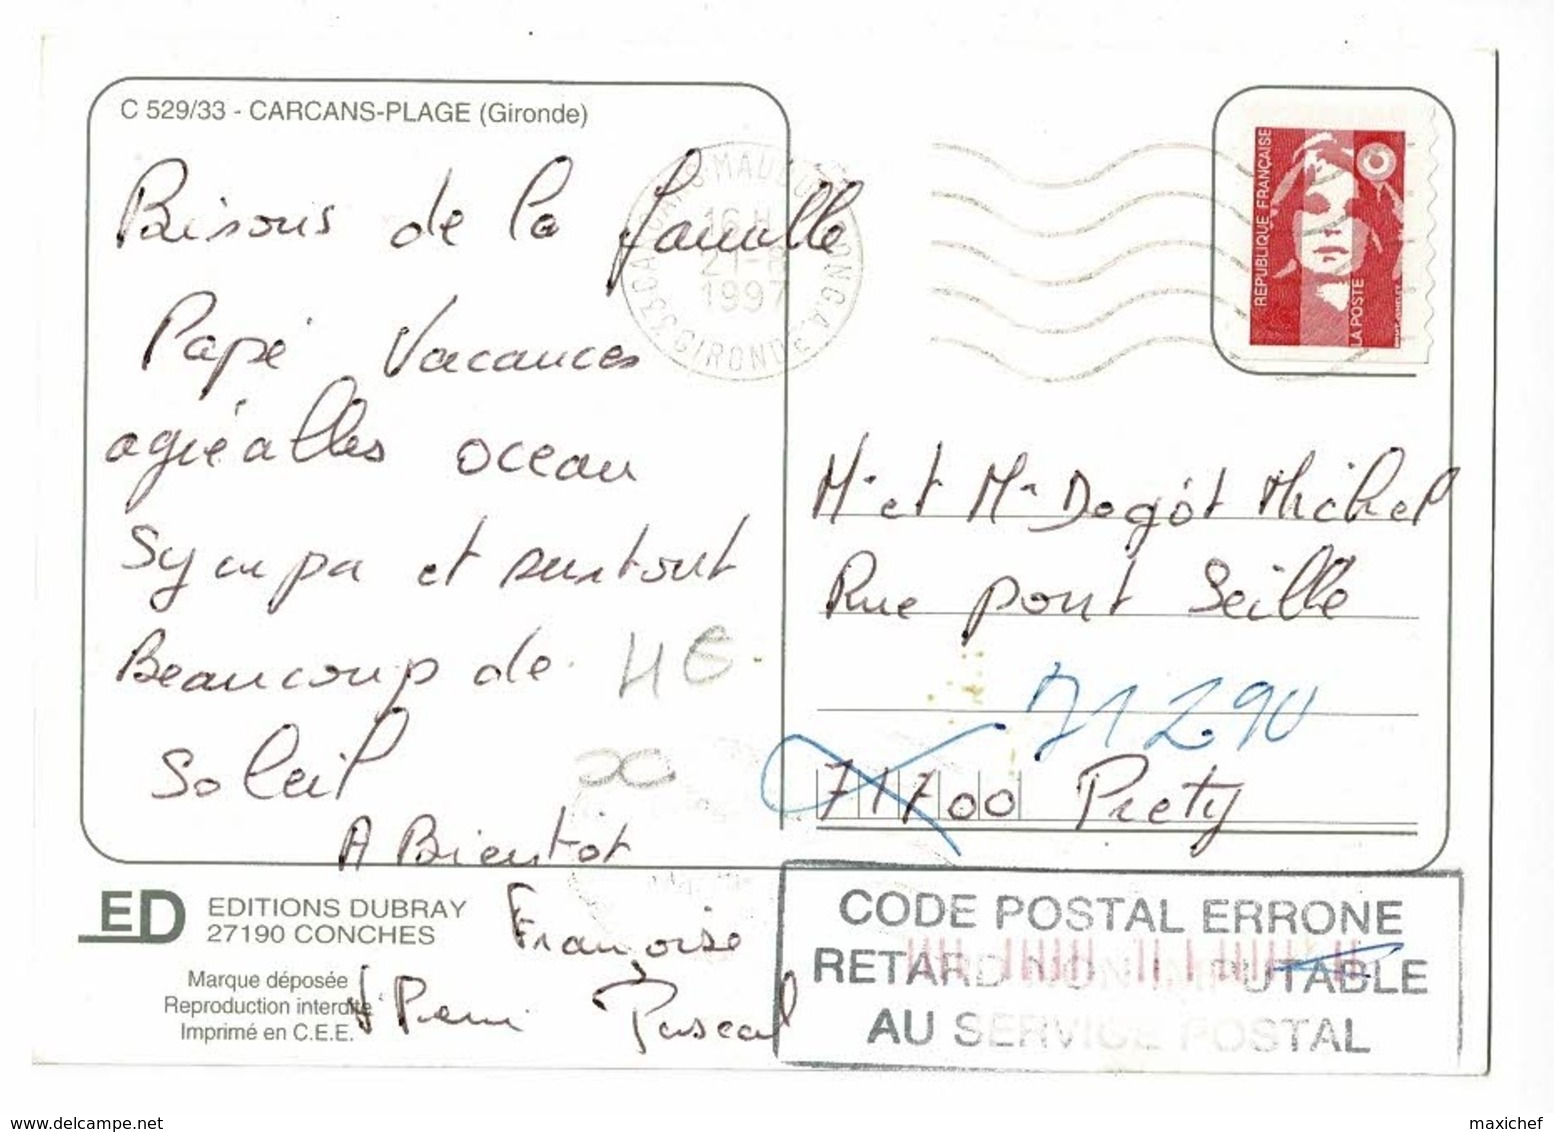 C 529/33 - CARCANS-PLAGE (Gironde)
Bisous de la famille
Papé Vacances
agréables ocean
Sympa et surtout
Beaucoup de
Soleil
A Bientôt
Françoise
J Pierre Pascal
4€
16 H
21-8
1997
GIRONDE
REPUBLIQUE FRANÇAISE
LA POSTE
Mr et Mme Dogót Michel
Rue pont Seille
71290
71700 Prety
CODE POSTAL ERRONE
RETARD NON IMPUTABLE
AU SERVICE POSTAL
ED
EDITIONS DUBRAY
27190 CONCHES
Marque déposée
Reproduction interdite
Imprimé en C.E.E.
delcampe.net
maxichef